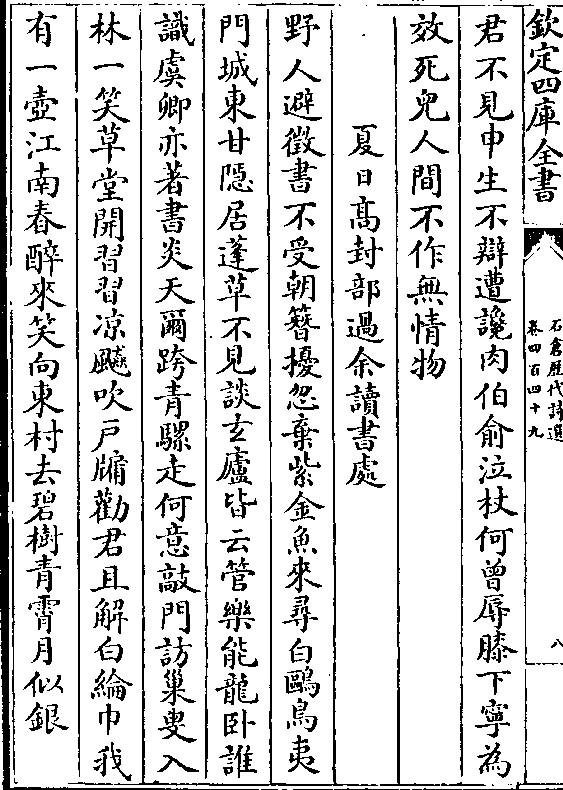 欽定四庫全書
石倉歷代詩選
卷四百四十九
八
君不見申生不辯遭讒肉伯俞泣杖何曾辱膝下寧為
效死兒人間不作無情物
夏日髙封部過余讀書處
野人避徵書不受朝簪擾忽棄紫金魚來尋白鷗鳥夷
門城東甘隱居蓬草不見談玄廬皆云管樂能龍卧誰
識虞卿亦著書炎天爾跨青騾走何意敲門訪巢叟入
林一笑草堂開習習凉飇吹戸牖勸君且解白綸巾我
有一壺江南春醉來笑向東村去碧樹青霄月似銀